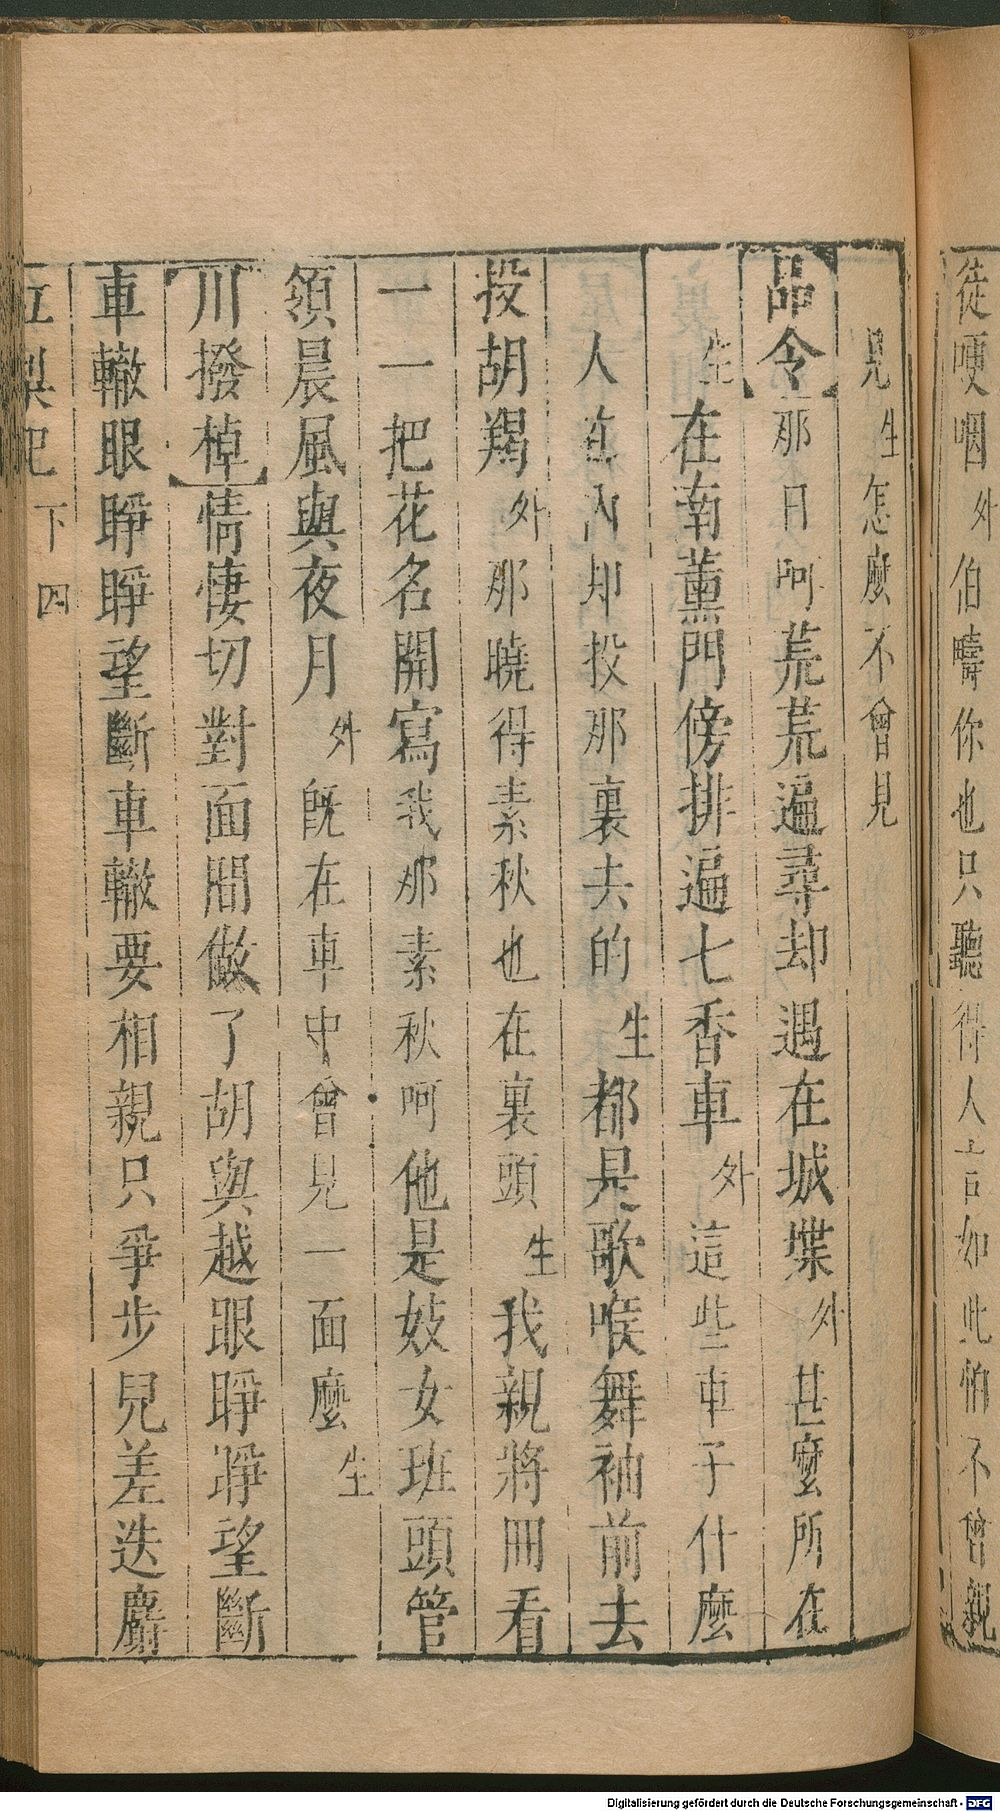 徒哽咽外伯疇你也只聽得人言如此怕不曾親
見生怎麼不曾見
【品令】那日呵荒荒遍尋却遇在城堞外甚麼所在
生在南薰門傍排遍七香車外這些車子什麼
人在內却投那裏去的生都是歌喉舞袖前去
投胡羯外那曉得素秋也在裏頭生我親將冊看
一一把花名開寫我那素秋呵他是妓女班頭管
領晨風與夜月外既在車中曾見一面麼生
【川撥棹】情悽切對面間做了胡與越眼睜睜望斷
車轍眼睜睜望斷車轍要相親只爭步兒差迭麝
紅梨記 下 四
Digitalisierung gefördert durch die Deutsche Forschungsgemeinschaft - DFG